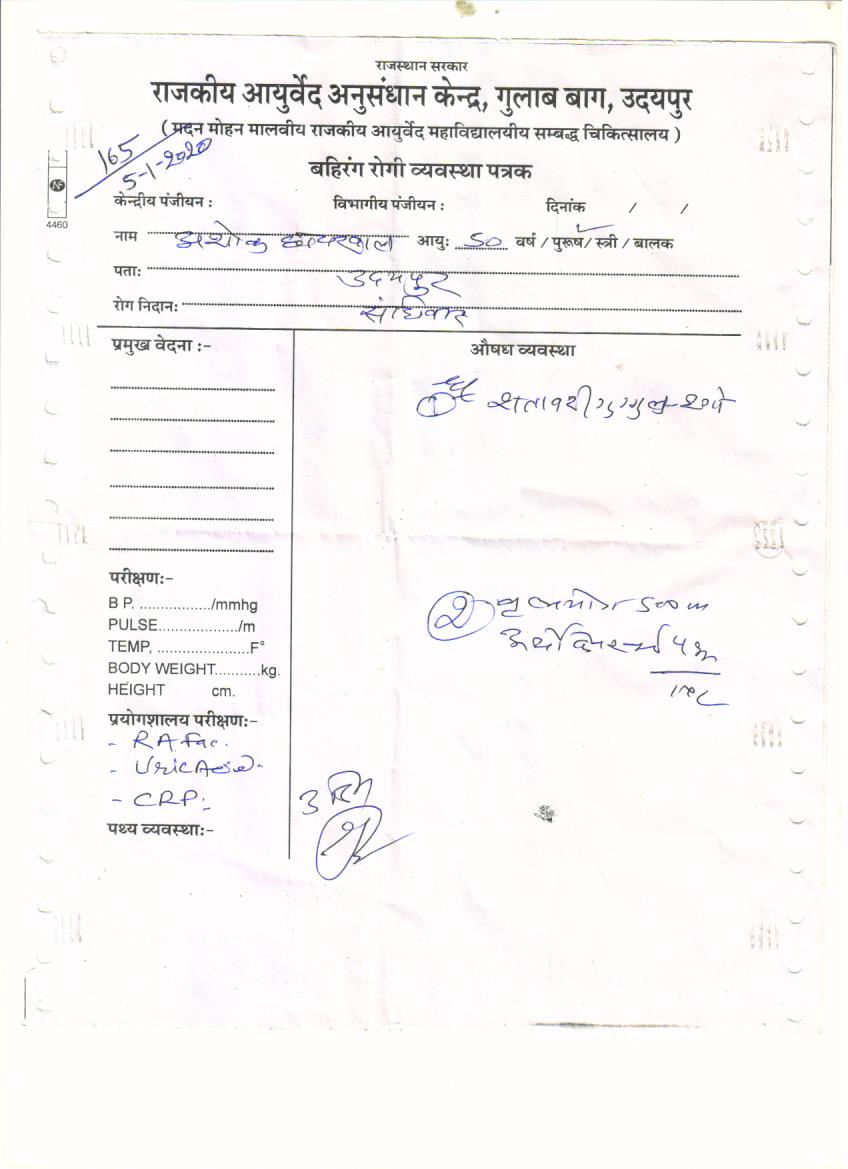 राजस्थान सरकार
राजकीय आयुर्वेद अनुसंधान केन्द्र, गुलाब बाग, उदयपुर
( मदन मोहन मालवीय राजकीय आयुर्वेद महाविद्यालयीय सम्बद्ध चिकित्सालय )
165
5-1-2020
बहिरंग रोगी व्यवस्था पत्रक
NF
4460
केन्द्रीय पंजीयन : विभागीय पंजीयन : दिनांक / /
नाम अशोक आयुः 50 वर्ष / पुरूष / स्त्री / बालक
पताः उदयपुर
रोग निदानः संधिवात
प्रमुख वेदना :-
औषध व्यवस्था
1 शतावरी गुग्गुलु
परीक्षणः-
B P. ................./mmhg
PULSE................../m
TEMP, ......................F°
BODY WEIGHT...........kg.
HEIGHT cm.
2
प्रयोगशालय परीक्षणः-
- RA Fac.
- Uric Acid
- CRP
3
पथ्य व्यवस्थाः-